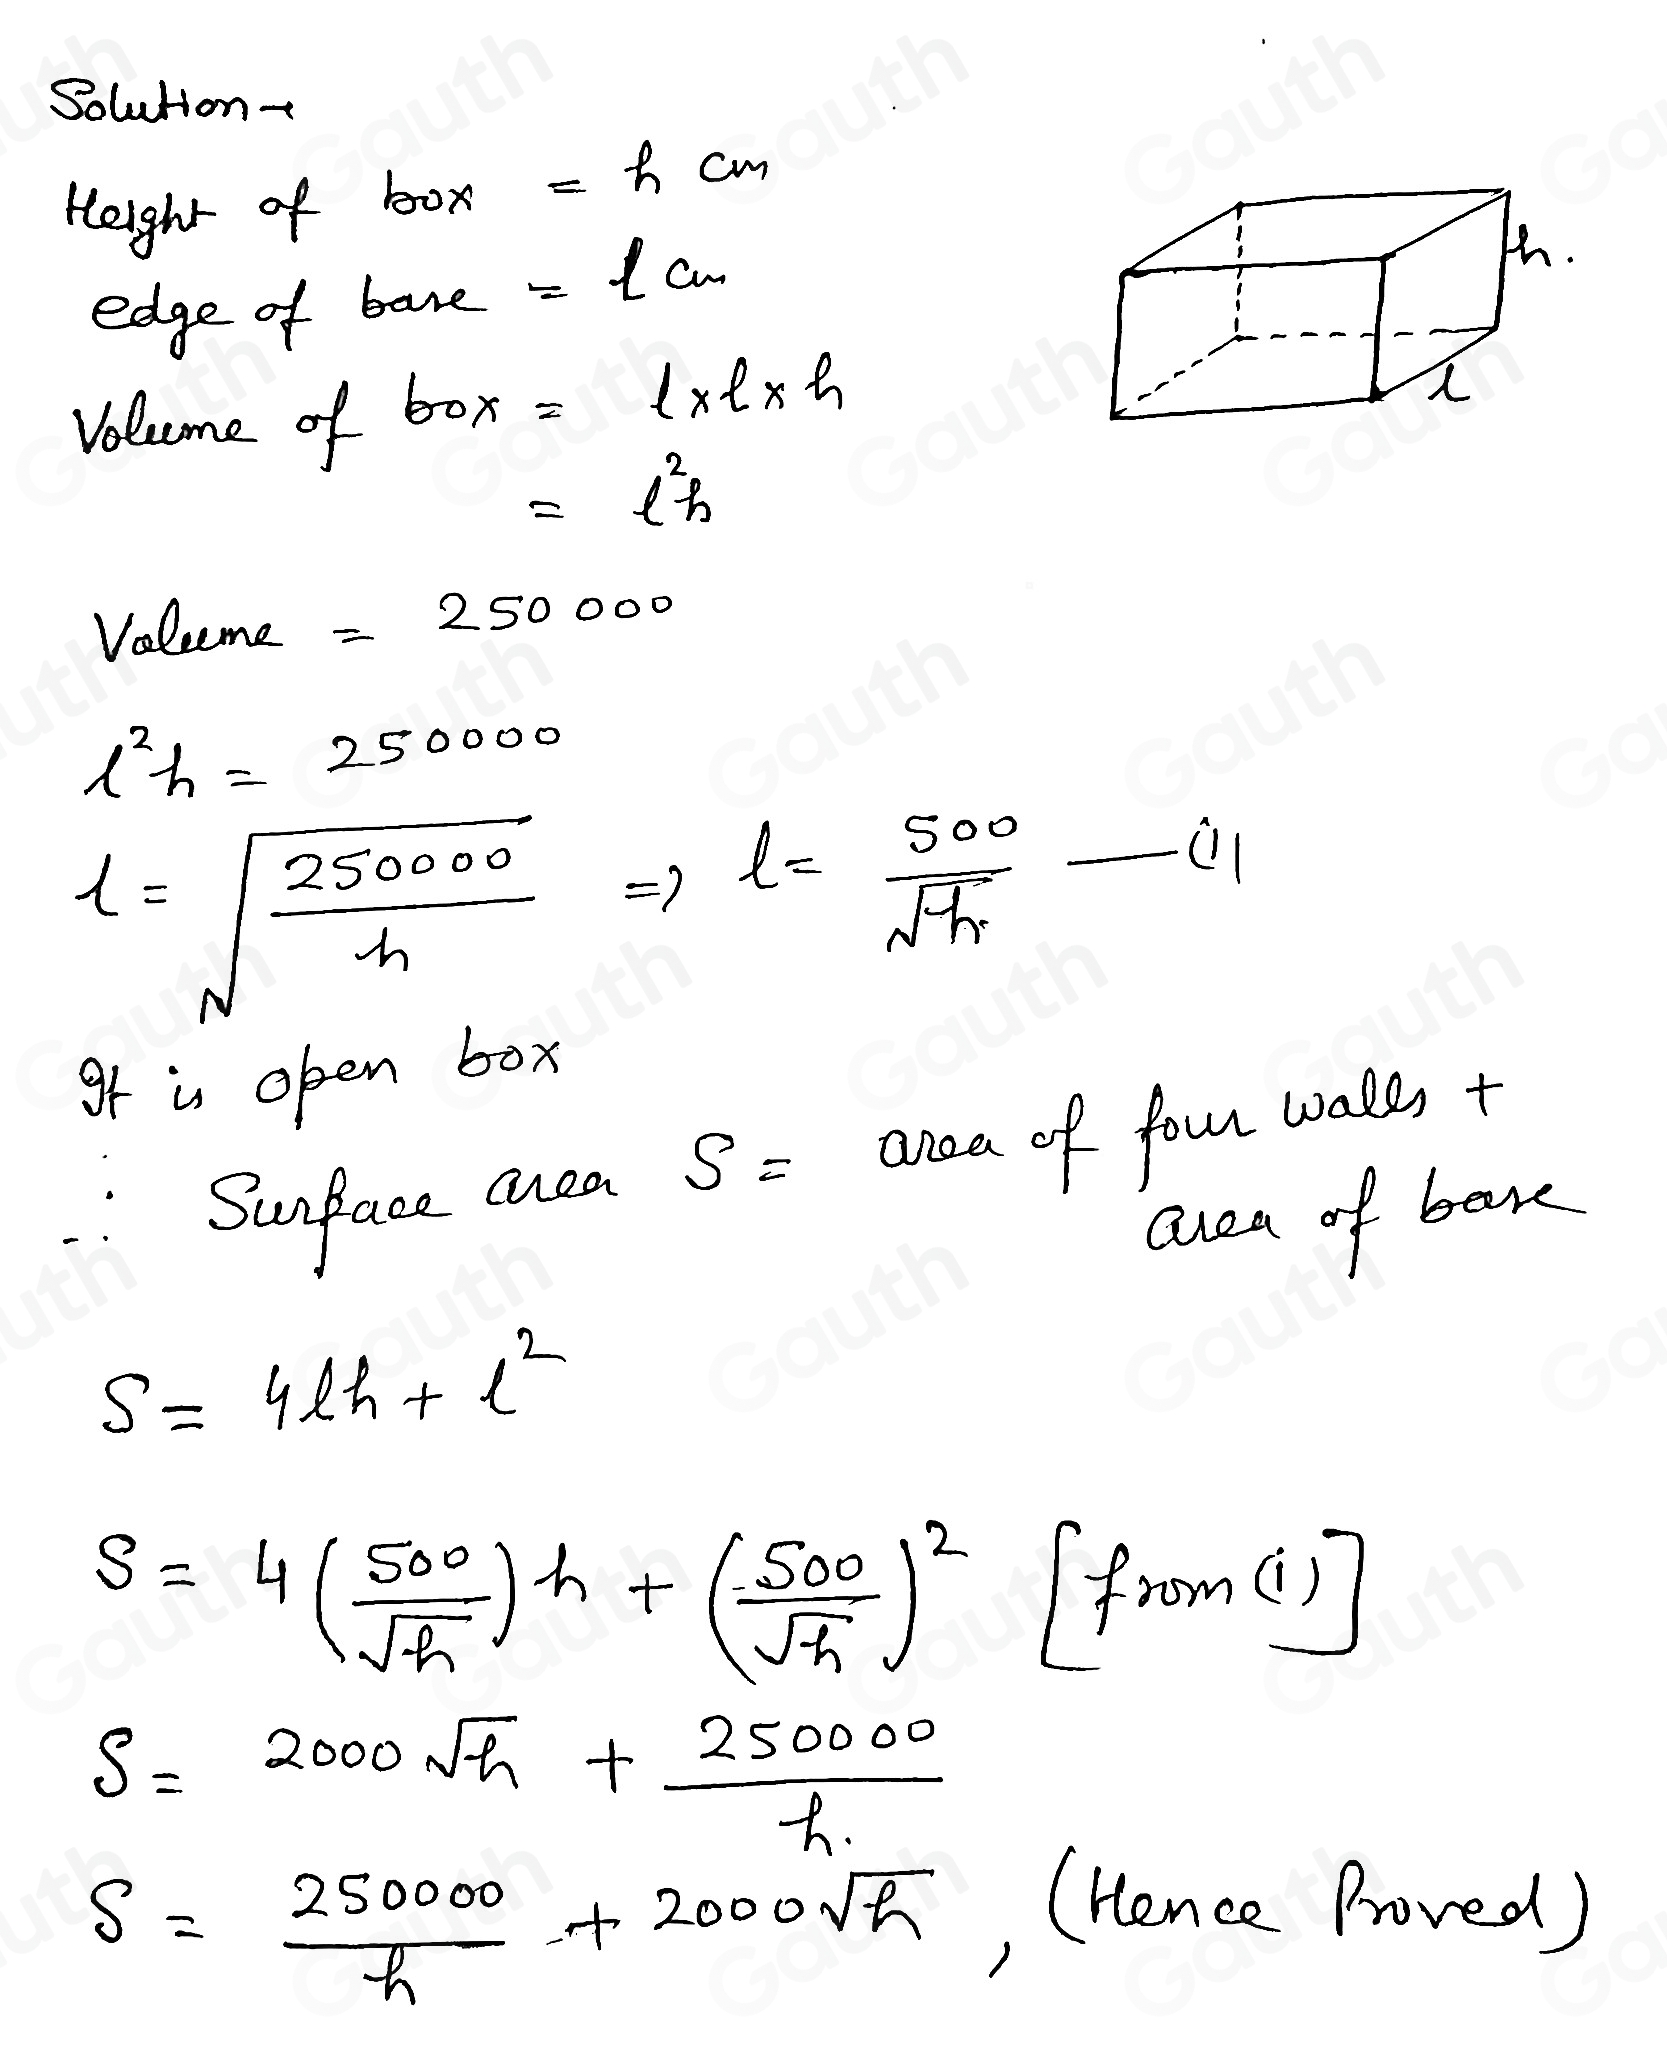 Solution→
Height of box = h cm
h.
edge of base = l cm
l
Volume of box = l×l×h
= l²h
Volume = 250 000
l²h = 250000
l = √(250000/h) => l = 500/√h. —(i)
It is open box
∴ Surface area S = area of four walls +
area of base
S = 4lh + l²
S = 4(500/√h)h + (500/√h)² [from (i)]
S = 2000√h + 250000/h.
S = 250000/h + 2000√h, (Hence Proved)
Gauth